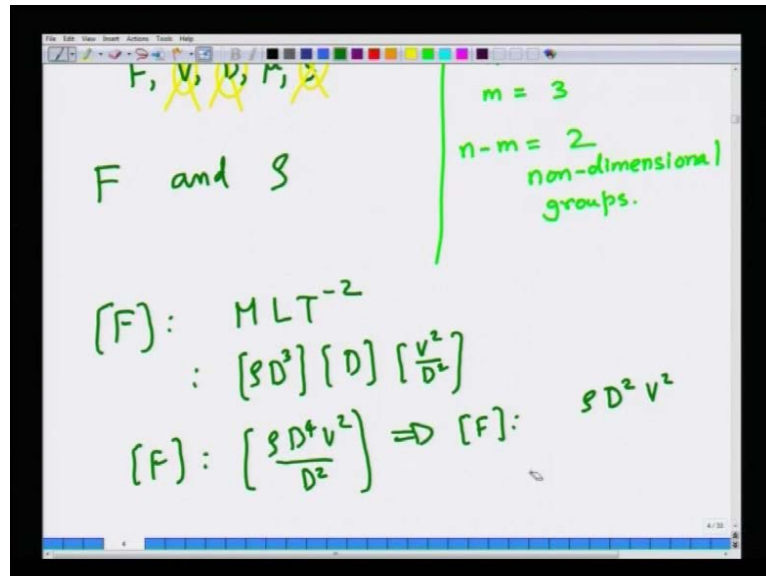 File Edit View Insert Actions Tools Help
F, V, D, μ, ρ
m = 3
n-m = 2
non-dimensional
groups.
F and ρ
[F]: MLT⁻²
: [ρD³] [D] [V²/D²]
[F]: [ρD⁴V²/D²] ⇒ [F]: ρD²V²
4/33
6